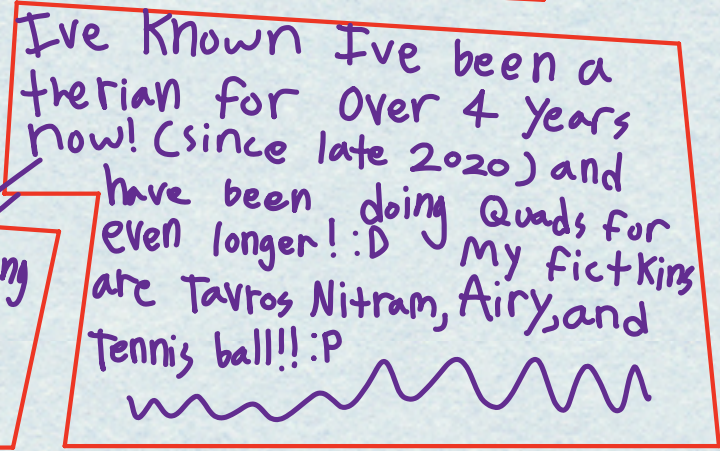 Ive known Ive been a
therian for over 4 years
now! (since late 2020) and
have been doing Quads for
even longer! :D My fictkins
are Tavros Nitram, Airy, and
Tennis ball!! :P
ng